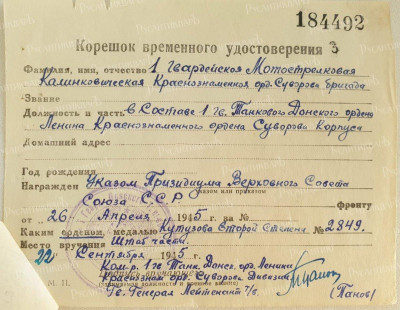 184492
Корешок временного удостоверения 3
Фамилия, имя, отчество 1 Гвардейская Мотострелковая
Калинковическая Краснознаменная орд. Суворова бригада
Звание
Должность и часть в составе 1 гв. Танкового Донского ордена
Ленина Краснознаменного ордена Суворова Корпуса
Домашний адрес
Год рождения
Награжден Указом Призидиума Верховного Совета
указом или приказом
Союза ССР фронту
от „26" Апреля 1945 г. за №
Каким орденом, медалью Кутузова Второй степени № 2849.
Место вручения Штаб части.
22 Сентября 1945 г.
Ком.р 1 гв Танк. Донск. орд. Ленина
Краснознам орд. Суворова Дивизии
Гв. Генерал Лейтенант т/в.
М. П.
(Панов)